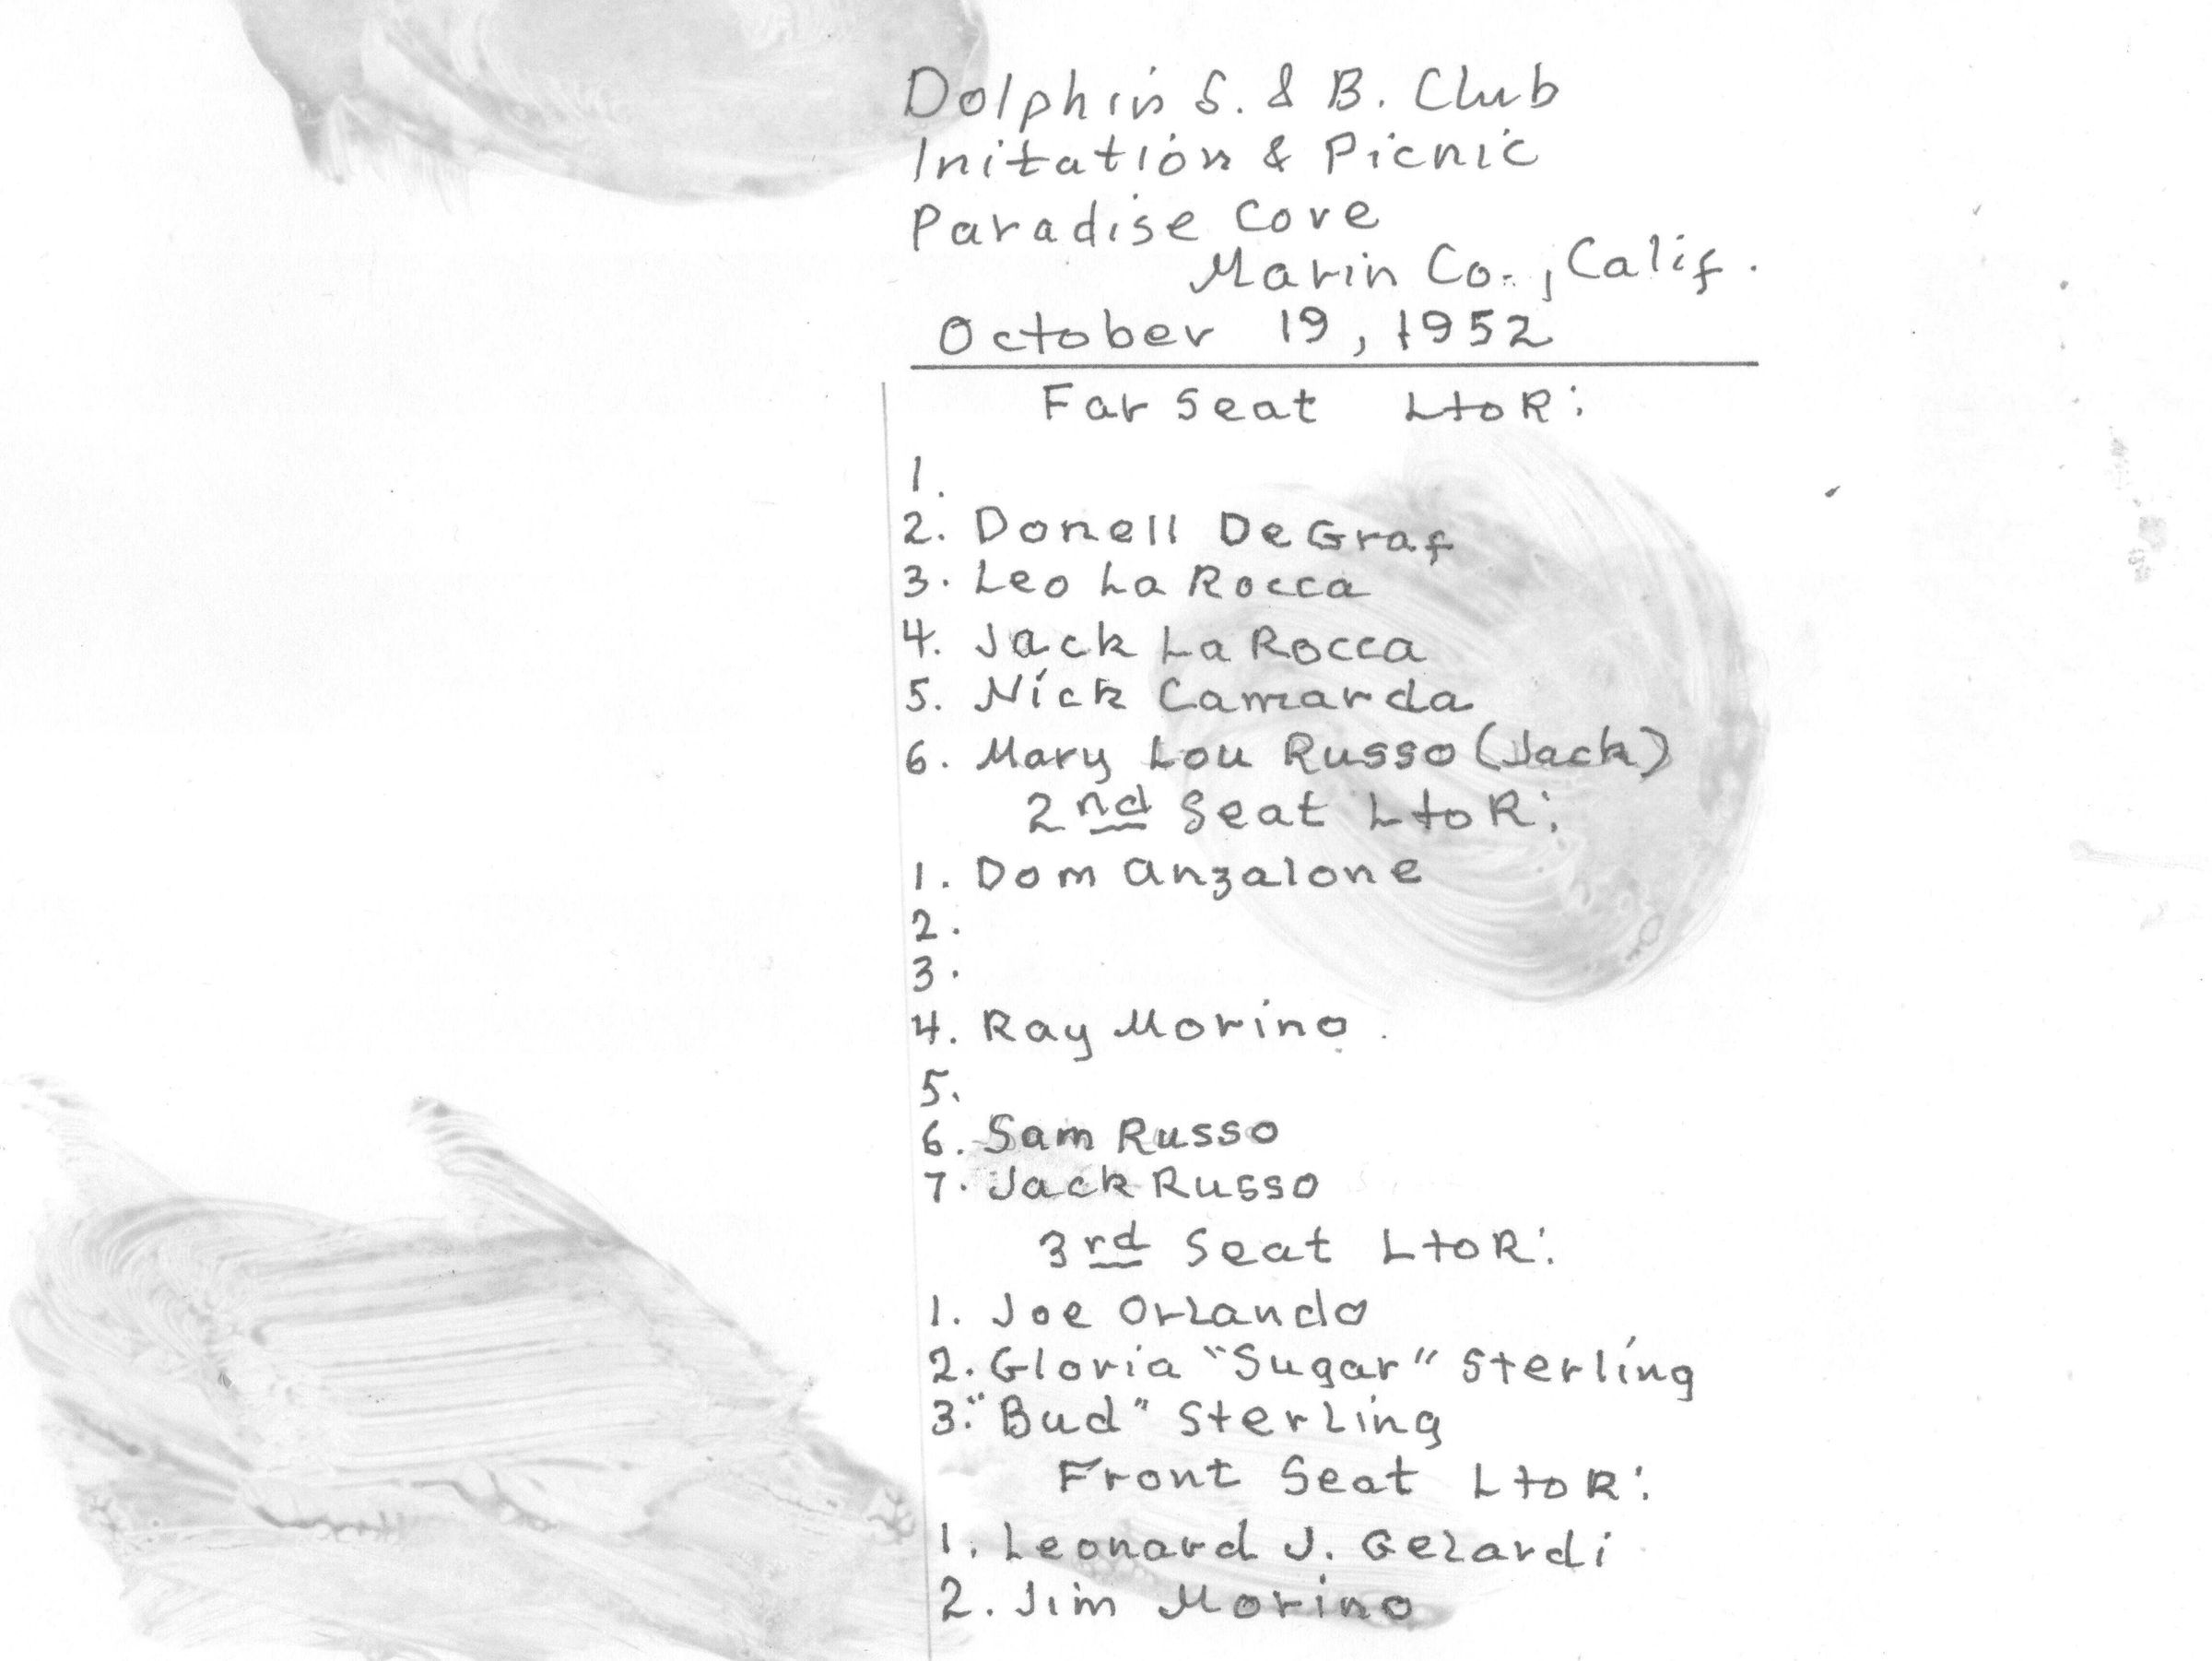 Dolphin S. & B. Club
Initation & Picnic
Paradise Cove
Marin Co., Calif.
October 19, 1952
Far Seat LtoR:
1.
2. Donell DeGraf
3. Leo La Rocca
4. Jack La Rocca
5. Nick Camarda
6. Mary Lou Russo (Jack)
2nd Seat LtoR:
1. Dom Anzalone
2.
3.
4. Ray Morino
5.
6. Sam Russo
7. Jack Russo
3rd Seat LtoR:
1. Joe Orlando
2. Gloria "Sugar" Sterling
3. "Bud" Sterling
Front Seat LtoR:
1. Leonard J. Gelardi
2. Jim Morino